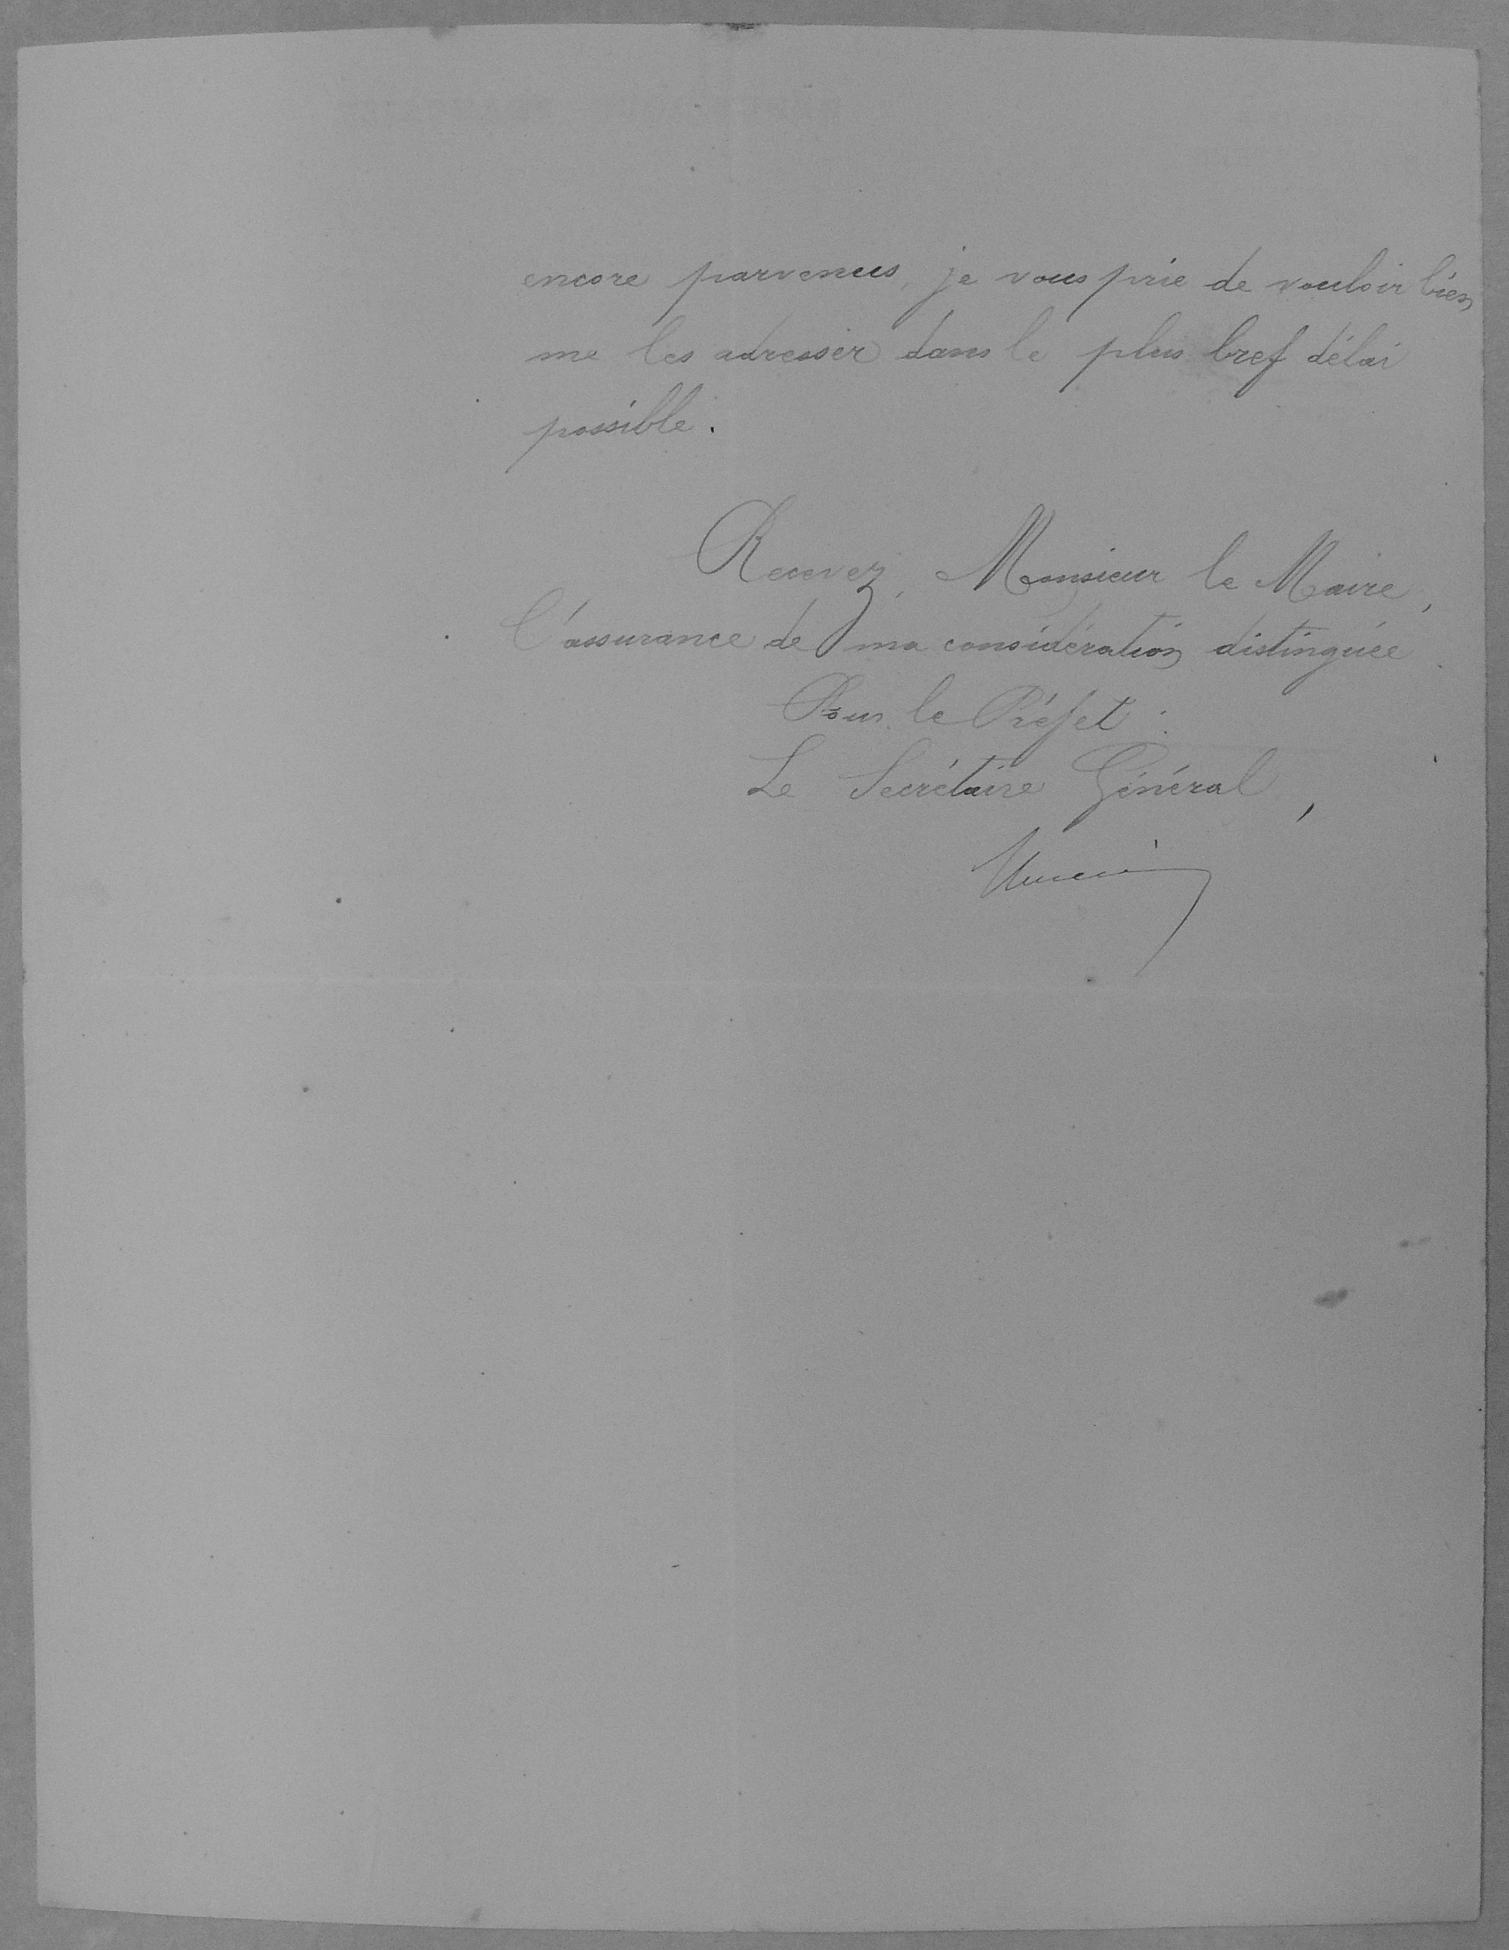 encore parvenus, je vous prie de vouloir bien
me les adresser dans le plus bref délai
possible.
Recevez, Monsieur le Maire,
l'assurance de ma considération distinguée.
Pour le Préfet :
Le Secrétaire Général,